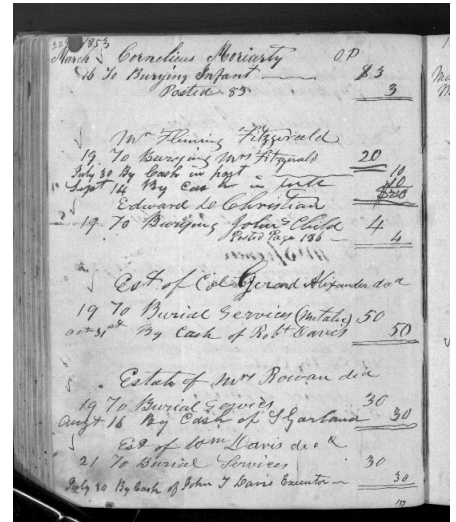 229 1853
March Cornelius Moriarty OP
16 To Burying Infant $3
Posted 83 3
Mr Fleming Fitzgerald
19 To Burying Mrs Fitzgerald 20
July 30 By Cash in part 10
Sept 14 By Cash in full 10
$20
Edward D Christian
19 To Burying John's Child 4
Posted Page 186 4
Est. of Col Gerard Alexander dcd
19 To Burial Services (Metalic) 50
Oct 31st By Cash of Robt Davis 50
Estate of Mrs Rowan dcd
19 To Burial Services 30
Augt 16 By Cash of S Garland 30
Est of Wm Davis decd
21 To Burial Services 30
July 30 By Cash of John T Davis Executor 30